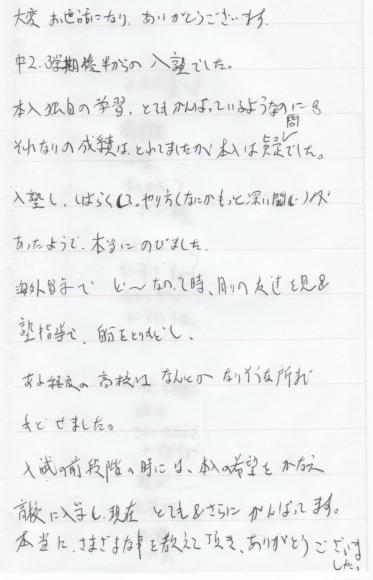 大変お世話になり、ありがとうございます。
中2.3学期後半からの入塾でした。
本人独自の学習、とてもがんばっているようなのに
それなりの成績は、とれてましたが本人は疑問でした。
入塾し、しばらくして、やり方(なにかもっと深い問い)が
あったようで、本当にのびました。
海外留学で ど〜なの?時、周りの友達を見
塾指導で、自分をとりもどし、
ある程度の高校は なんとかなりそうな所まで
もどせました。
入試の前段階の時には、本人の希望をかなえ
高校に入学し、現在 とても さらに がんばってます。
本当に、さまざまな事を教えて頂き、ありがとうございました。